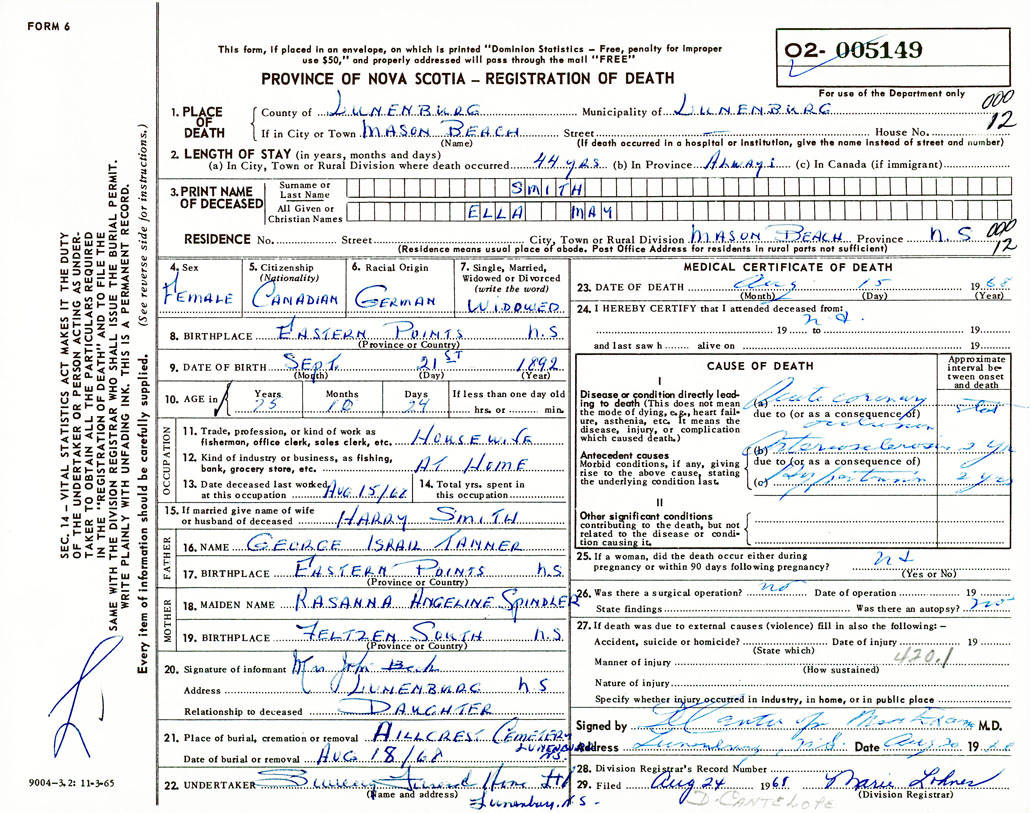 FORM 6
This form, if placed in an envelope, on which is printed "Dominion Statistics – Free, penalty for improper
use $50," and properly addressed will pass through the mail "FREE"
PROVINCE OF NOVA SCOTIA – REGISTRATION OF DEATH
O2- 005149
For use of the Department only
000
12
1. PLACE OF DEATH
County of LUNENBURG Municipality of LUNENBURG
If in City or Town MASON BEACH Street — House No.
(Name) (If death occurred in a hospital or institution, give the name instead of street and number)
2. LENGTH OF STAY (in years, months and days)
(a) In City, Town or Rural Division where death occurred 44 yrs (b) In Province Always (c) In Canada (if immigrant)
3. PRINT NAME OF DECEASED
Surname or Last Name SMITH
All Given or Christian Names ELLA MAY
RESIDENCE No. Street City, Town or Rural Division MASON BEACH Province N.S
(Residence means usual place of abode. Post Office Address for residents in rural parts not sufficient)
000
12
4. Sex
FEMALE
5. Citizenship
(Nationality)
CANADIAN
6. Racial Origin
GERMAN
7. Single, Married,
Widowed or Divorced
(write the word)
WIDOWED
8. BIRTHPLACE EASTERN POINTS N.S
(Province or Country)
9. DATE OF BIRTH SEPT. 21ST 1892
(Month) (Day) (Year)
10. AGE in Years Months Days If less than one day old
75 10 24 hrs. or min.
OCCUPATION
11. Trade, profession, or kind of work as
fisherman, office clerk, sales clerk, etc. HOUSEWIFE
12. Kind of industry or business, as fishing,
bank, grocery store, etc. AT HOME
13. Date deceased last worked
at this occupation AUG 15/68
14. Total yrs. spent in
this occupation
15. If married give name of wife
or husband of deceased HARRY SMITH
FATHER
16. NAME GEORGE ISRAIL TANNER
17. BIRTHPLACE EASTERN POINTS N.S
(Province or Country)
MOTHER
18. MAIDEN NAME RASANNA ANGELINE SPINDLER
19. BIRTHPLACE FELTZEN SOUTH N.S
(Province or Country)
20. Signature of informant Mrs John
Address LUNENBURG N S
Relationship to deceased DAUGHTER
21. Place of burial, cremation or removal HILLCREST CEMETERY
LUNENBURG
N.S.
Date of burial or removal AUG 18/68
22. UNDERTAKER Funeral Home
(Name and address)
Lunenburg, N.S.
MEDICAL CERTIFICATE OF DEATH
23. DATE OF DEATH Aug 15 1968
(Month) (Day) (Year)
24. I HEREBY CERTIFY that I attended deceased from:
19 to 19
and last saw h alive on 19
CAUSE OF DEATH
Approximate interval between onset and death
I
Disease or condition directly leading to death (This does not mean
the mode of dying, e.g., heart failure, asthenia, etc. It means the
disease, injury, or complication
which caused death.)
(a) Acute coronary
due to (or as a consequence of)
occlusion
Antecedent causes
Morbid conditions, if any, giving
rise to the above cause, stating
the underlying condition last.
(b) 2 yrs
due to (or as a consequence of)
(c) 2 yrs
II
Other significant conditions
contributing to the death, but not
related to the disease or condition causing it.
25. If a woman, did the death occur either during
pregnancy or within 90 days following pregnancy?
(Yes or No)
26. Was there a surgical operation? no Date of operation 19
State findings Was there an autopsy? no
27. If death was due to external causes (violence) fill in also the following: –
Accident, suicide or homicide? Date of injury 19
(State which)
420.1
Manner of injury
(How sustained)
Nature of injury
Specify whether injury occurred in industry, in home, or in public place
Signed by M.D.
Address Lunenburg, N.S. Date Aug 20 1968
28. Division Registrar's Record Number
29. Filed Aug 24 1968 Marie Lohnes
(Division Registrar)
D. CANTELOPE
SEC. 14 – VITAL STATISTICS ACT MAKES IT THE DUTY
OF THE UNDERTAKER OR PERSON ACTING AS UNDER-
TAKER TO OBTAIN ALL THE PARTICULARS REQUIRED
IN THE "REGISTRATION OF DEATH" AND TO FILE THE
SAME WITH THE DIVISION REGISTRAR WHO SHALL ISSUE THE BURIAL PERMIT.
WRITE PLAINLY WITH UNFADING INK. THIS IS A PERMANENT RECORD.
Every item of information should be carefully supplied. (See reverse side for instructions.)
9004-3.2: 11-3-65